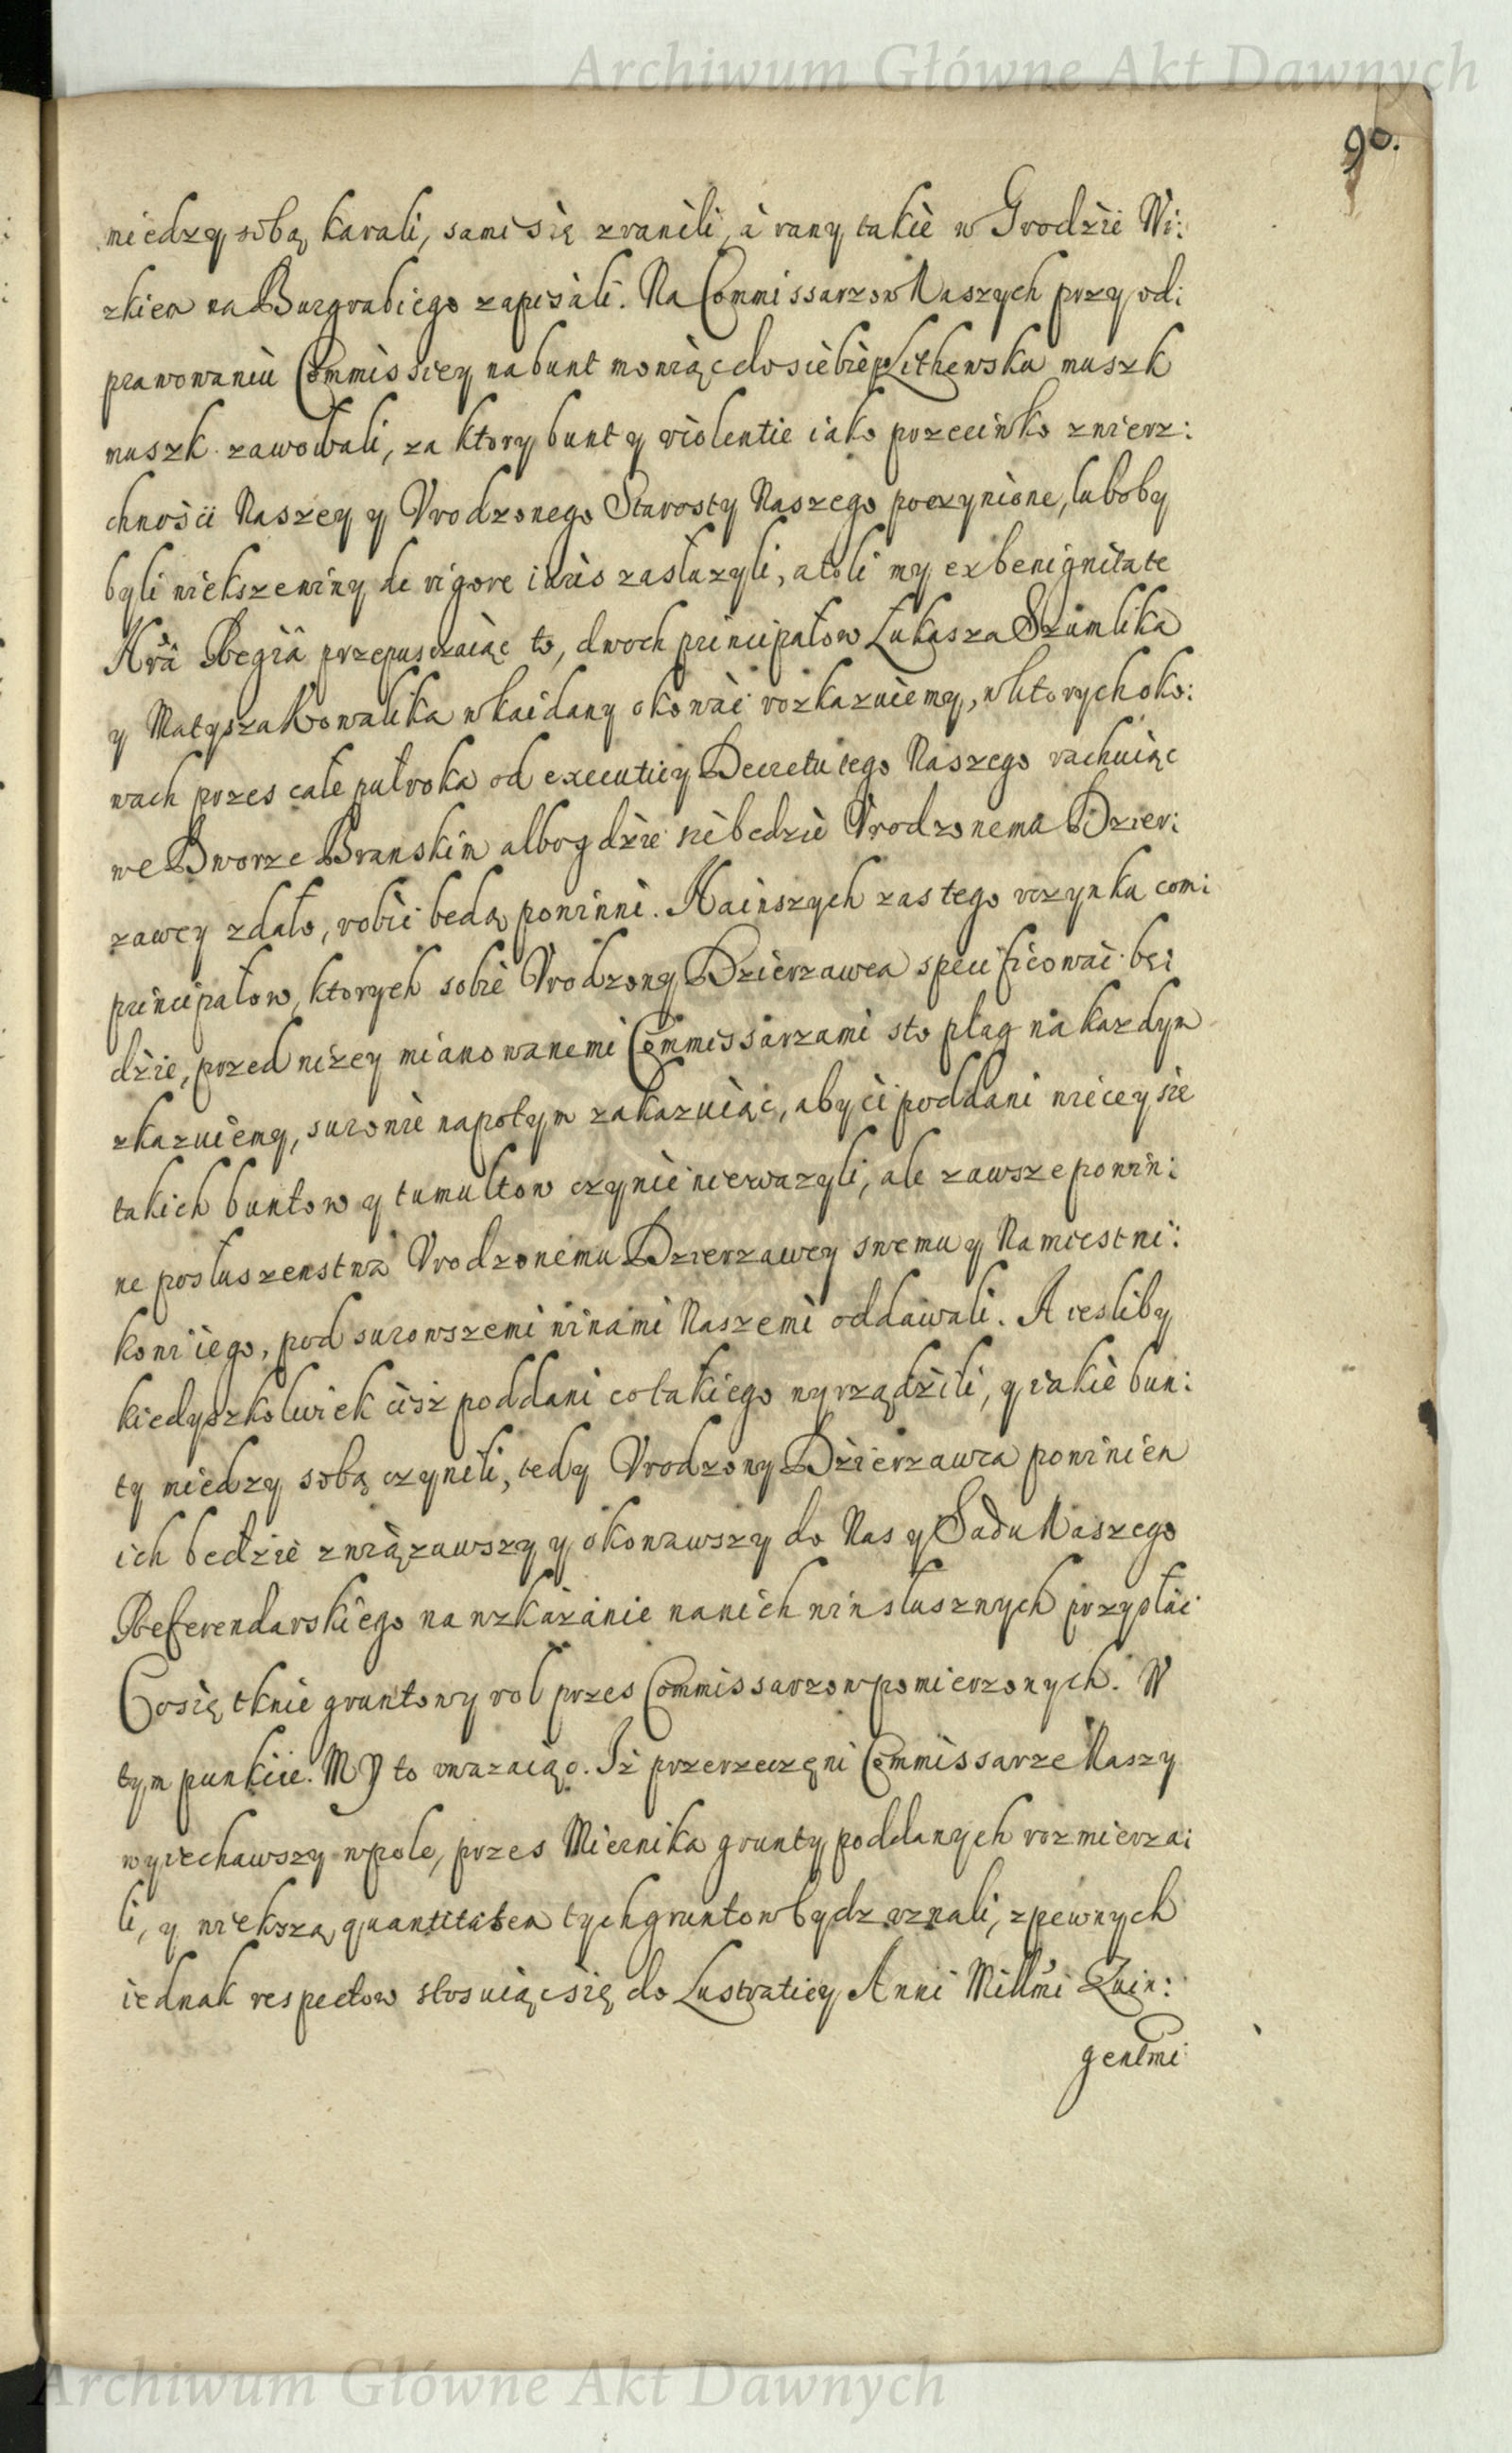 Archiwum Główne Akt Dawnych
90.
miedzy sobą karali, sami się zranili, à rany takie w Grodzie Wi:
zkiem na Burgrabiego zapisali. Na Commissarzow Naszych przy od:
prawowaniu Commissiey na bunt mowiąc do siebie p Lithewsku muszk
muszk zawołali, za ktory bunt y violentie iako przeciwko zwierz:
chności Naszey y Vrodzonego Starosty Naszego poczynione, luboby
byli wiekszewiny de rigore iuris zasłuzyli, atoli my ex benignitate
Nrã Regiâ przepuszczaiąc to, dwoch principałow Łukasza Szumlika
y Matysza Kowalika w kaidany okować rozkazuiemy, w ktorych oko:
wach przes całe pułroka od executiey Decretu tego Naszego rachuiąc
we Dworze Branskim albo gdzie sie bedzie Vrodzonemu Dzier:
zawcy zdało, robić bedą powinni. Na inszych zas tego uczynku com:
principałow, ktorych sobie Vrodzony Dzierzawca specificować bę:
dzie, przed nizey mianowanemi Commissarzami sto plag na kazdym
zkazuiemy, surowie napotym zakazuiąc, aby ci poddani wiecey sie
takich buntow y tumultow czynić niewazyli, ale zawsze powin:
ne posłuszenstwa Vrodzonemu Dzierzawcy swemu y Namiestni:
kowi iego, pod surowszemi winami Naszemi oddawali. A iesliby
kiedyszkolwiek cisz poddani co takiego wyrządzili, y iakie bun:
ty miedzy sobą czynili, tedy Vrodzony Dzierzawca powinien
ich bedzie związawszy y okowawszy do Nas y Sądu Naszego
Referendarskiego na wzkazanie na nich win słusznych przysłac
Co się tknie gruntow y rol przes Commissarzow pomierzonych. W
tym punkcie. MY to uwazaiąc. Iż przerzeczęni Commissarze Naszy
wyiechawszy w pole, przes Miernika grunty poddanych rozmierza:
li, y wiekszą quantitatem tych gruntow bydz uznali, z pewnych
iednak respectow stosuiąc się do Lustratiey Anni Millmi Quin:
gentmi
Archiwum Główne Akt Dawnych